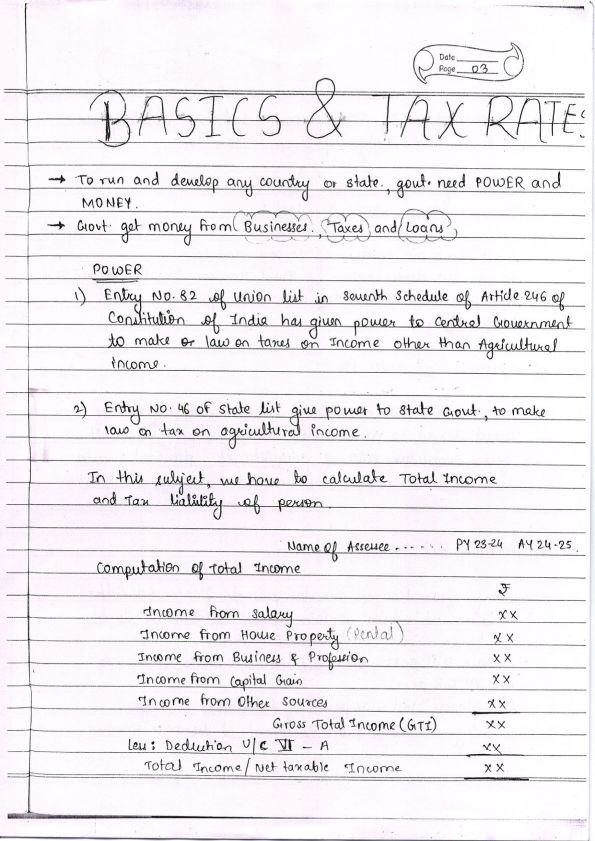 Date
Page 03
BASICS & TAX RATES
→ To run and develop any country or state, govt. need POWER and
MONEY.
→ Govt. get money from Businesses, Taxes and Loans,
POWER
1) Entry No. 82 of Union list in Seventh Schedule of Article 246 of
Constitution of India has given power to Central Government
to make or law on taxes on Income other than Agricultural
income.
2) Entry NO. 46 of State list give power to State Govt., to make
law on tax on agricultural income.
In this subject, we have to calculate Total Income
and Tax liability of person.
Name of Assessee ...... PY 23-24 AY 24-25.
Computation of Total Income
₹
Income from Salary xx
Income from House Property (Rental) xx
Income from Business & Profession xx
Income from Capital Gain xx
Income from Other Sources xx
Gross Total Income (GTI) xx
Less: Deduction U/C VI - A xx
Total Income/Net taxable Income xx